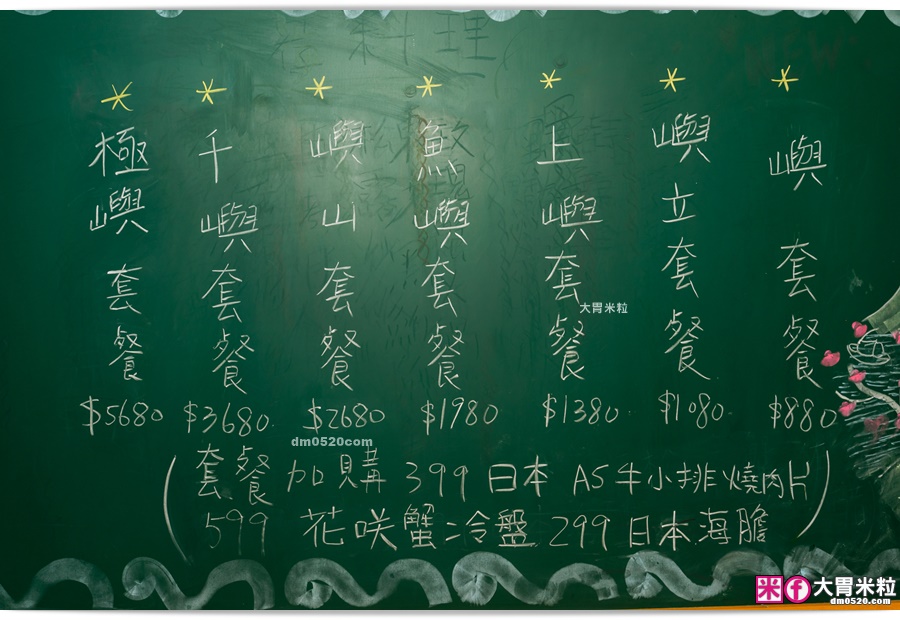 嶼套餐 $880
嶼立套餐 $1080
上嶼套餐 $1380
魚嶼套餐 $1980
嶼山套餐 $2680
千嶼套餐 $3680
極嶼套餐 $5680
(套餐加購 399 日本 A5牛小排燒肉片
599 花咲蟹冷盤 299 日本海膽)
大胃米粒
dm0520com
大胃米粒
dm0520.com